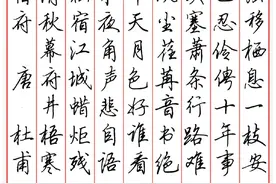 移栖息一枝安
忍伶俜十年事
塞萧条行路难
尘荏苒音书绝
天月色好谁看
夜角声悲自语
宿江城蜡炬残
秋幕府井梧寒
府 唐 杜甫